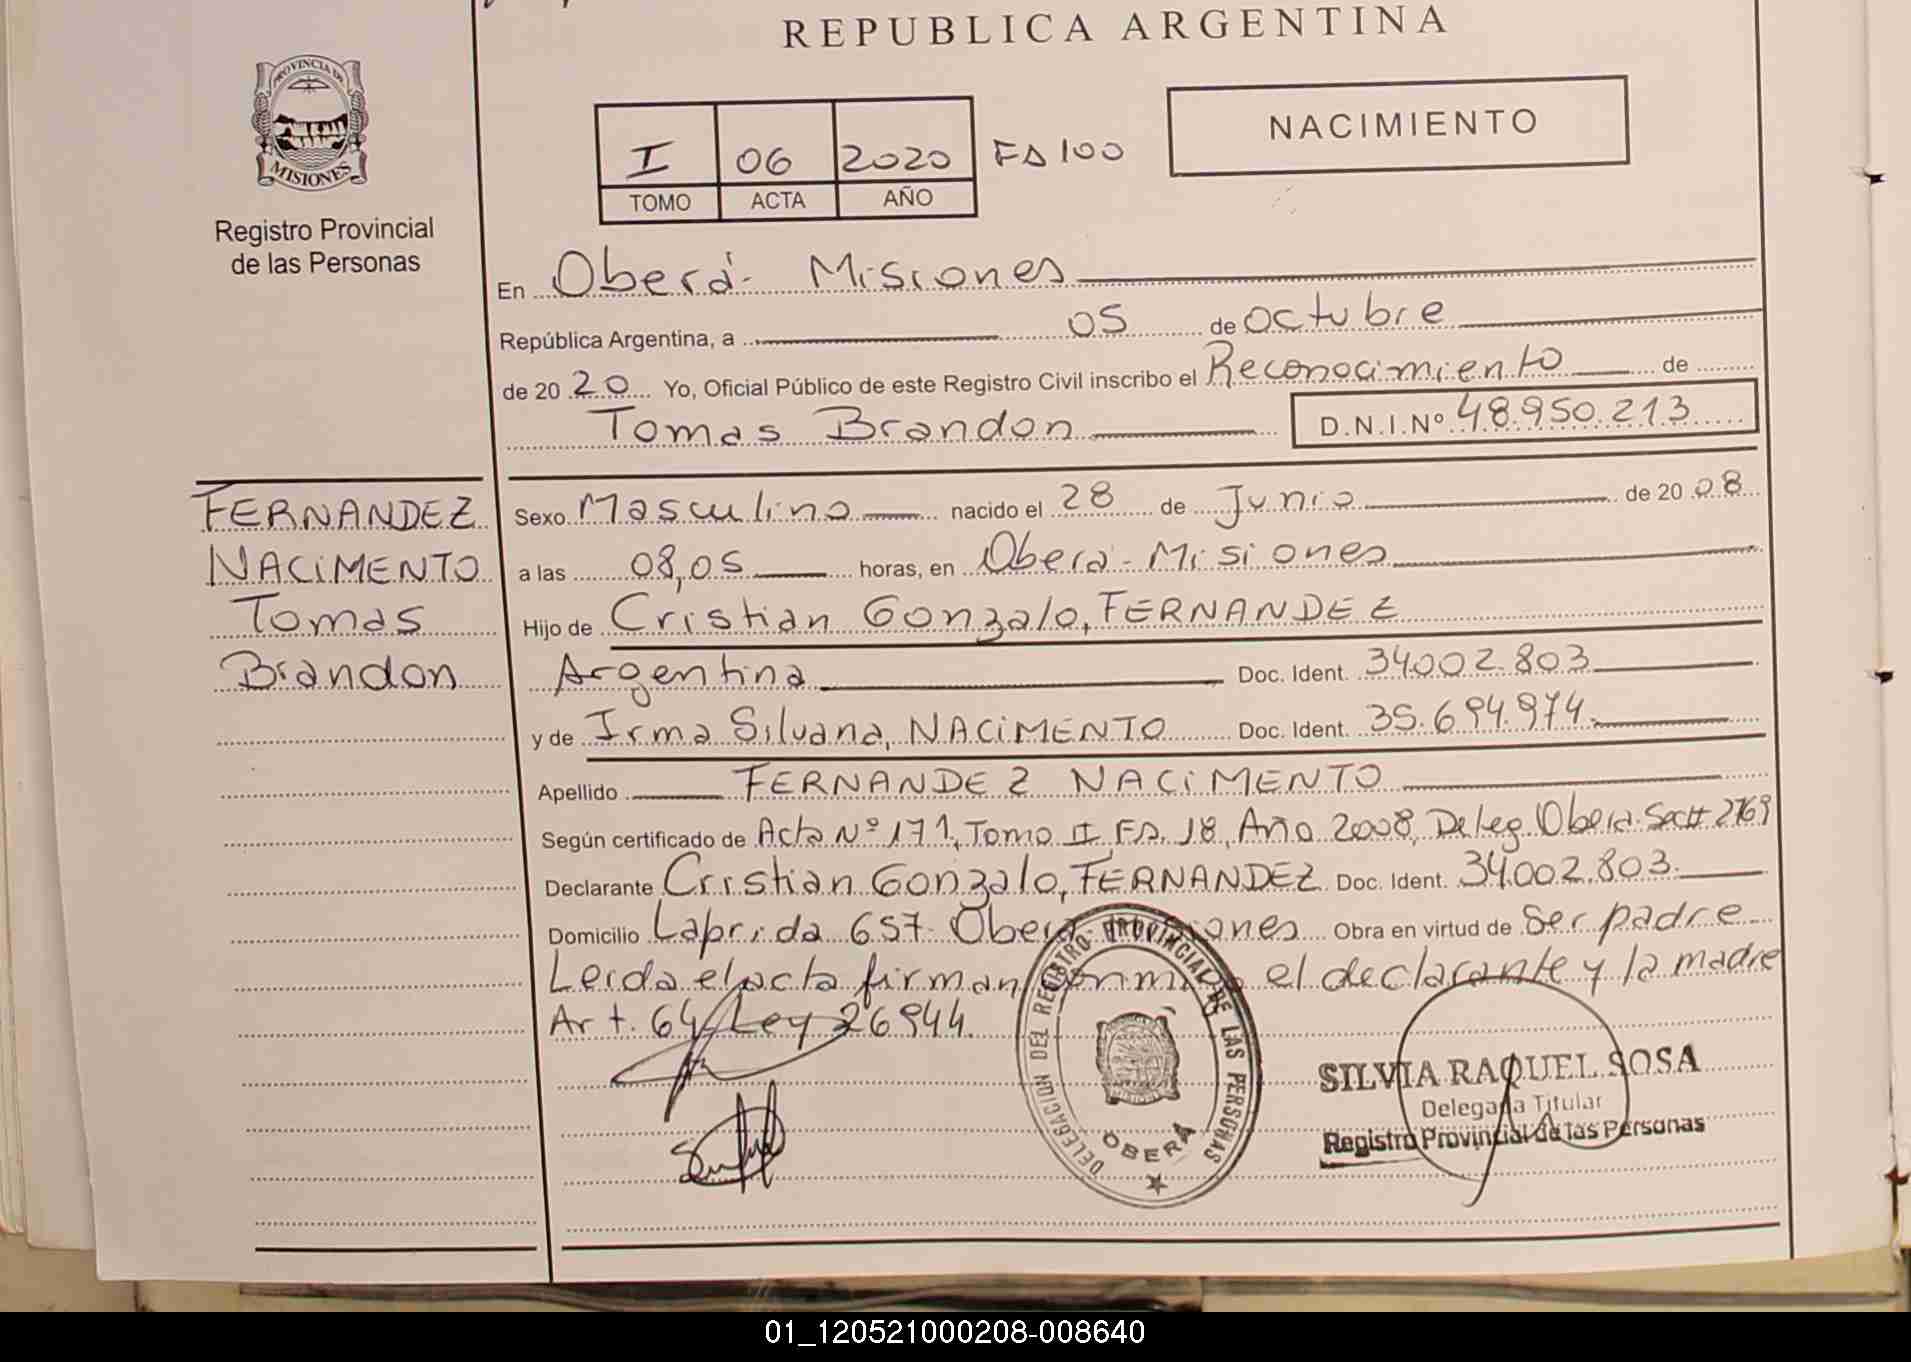 REPUBLICA ARGENTINA
PROVINCIA DE
MISIONES
Registro Provincial
de las Personas
I 06 2020 Fo 100
TOMO ACTA AÑO
NACIMIENTO
En Oberá - Misiones
República Argentina, a 05 de octubre
de 20 20 Yo, Oficial Público de este Registro Civil inscribo el Reconocimiento de
Tomas Brandon D.N.I.Nº 48.950.213
FERNANDEZ
NACIMENTO
Tomas
Brandon
Sexo Masculino nacido el 28 de Junio de 20 08
a las 08,05 horas, en Oberá - Misiones
Hijo de Cristian Gonzalo, FERNANDEZ
Argentina Doc. Ident. 34.002.803
y de Irma Silvana, NACIMENTO Doc. Ident. 35.694.974
Apellido FERNANDEZ NACIMENTO
Según certificado de Acta Nº 171, Tomo II Fo. 18, Año 2008, Deleg. Oberá. Sec# 2769
Declarante Cristian Gonzalo, FERNANDEZ Doc. Ident. 34.002.803
Domicilio Laprida 657- Oberá Misiones Obra en virtud de Ser padre
Leida el acta firman conmigo el declarante y la madre
Art. 64 Ley 26944.
DELEGACION DEL REGISTRO PROVINCIAL DE LAS PERSONAS
OBERÁ
SILVIA RAQUEL SOSA
Delegada Titular
Registro Provincial de las Personas
01_120521000208-008640